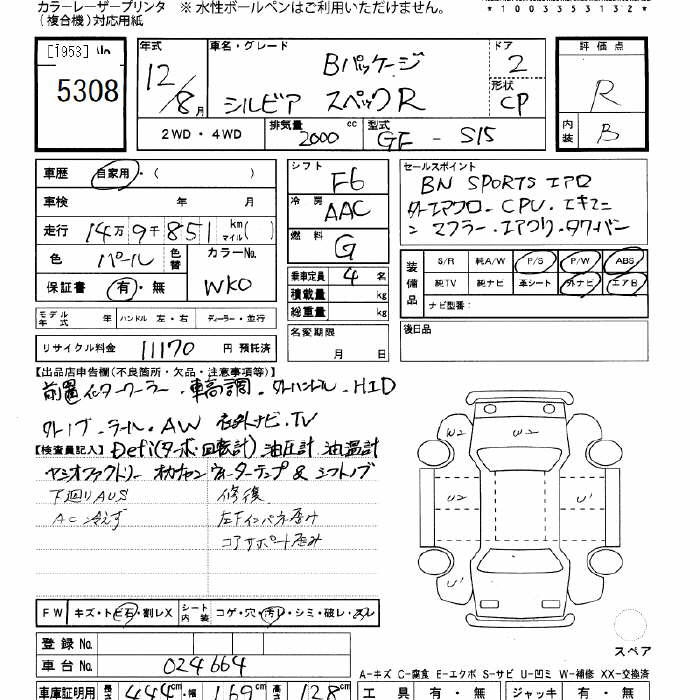 カラーレーザープリンタ ※ 水性ボールペンはご利用いただけません。 *1003353132*
（複合機）対応用紙
[1953]
5308
年式 12/8月
車名・グレード Bパッケージ
シルビア スペックR
ドア 2
形状 CP
評価点 R
内装 B
2WD・4WD 排気量 2000 cc 型式 GF - S15
車歴 自家用・( )
車検 年 月
走行 14万9千851 km マイル( )
色 パール 色替 カラーNo. WK0
保証書 有・無
シフト F6
冷房 AAC
燃料 G
乗車定員 4 名
積載量 kg
総重量 kg
セールスポイント
BN SPORTS エアロ
CPU.
マフラー.
タワーバー
装備品 S/R 純A/W P/S P/W ABS
純TV 純ナビ 革シート 外ナビ エアB
ナビ型番:
モデル年式 年 ハンドル 左・右 ディーラー・並行
リサイクル料金 11170 円 預託済
名変期限 月 日
後日品
【出品店申告欄(不良箇所・欠品・注意事項等)】
前置インタークーラー.車高調.外ハンドル.HID
AW 社外ナビ.TV
【検査員記入】Defi(ターボ.回転計)油圧計 油温計
ウォーターテンプ & シフトノブ
下廻りAUS 修復
AC冷えず 左Fインパネ歪み
コアサポート歪み
W2 W2
U2 U1
U1
FW キズ・トビ石・割レX シート内装 コゲ・穴・汚レ・シミ・破レ・スレ
スペア
登録 No.
車台 No. 024664
A-キズ C-腐食 E-エクボ S-サビ U-凹ミ W-補修 XX-交換済
車庫証明用 長さ 444cm 幅 169cm 高さ 128cm 工具 有・無 ジャッキ 有・無